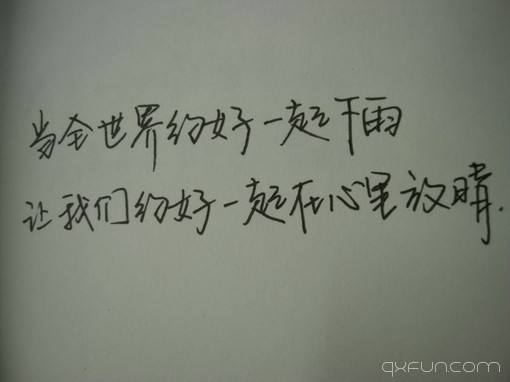 当全世界约好一起下雨
让我们约好一起在心里放晴.
qxfuncom